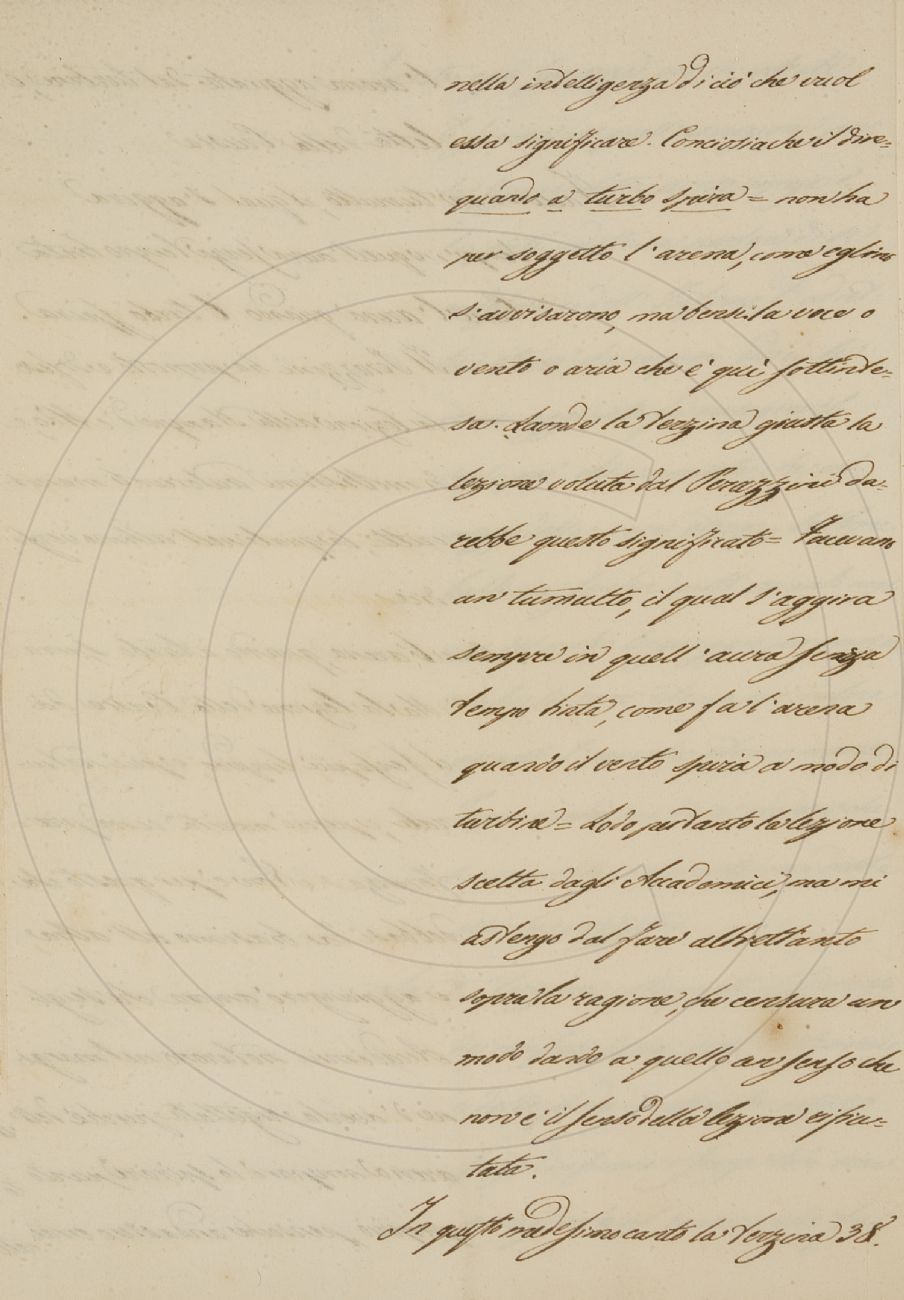 nella intelligenza di ciò che vuol
essa significare. Conciosiache il dire=
quando a turbo spira = non ha
per soggetto l'arena, come eglino
s'avvisarono, ma bensi la voce o
vento o aria che è qui sottinte-
sa. Laonde la terzina giusta la
lezione voluta dal Perazzini da-
rebbe questo significato = Facevano
un tumulto, il qual s'aggira
sempre in quell'aura senza
tempo tinta, come fa l'arena
quando il vento spira a modo di
turbine = Lodo pertanto la lezione
scelta dagli Accademici, ma mi
astengo dal fare altrettanto
sopra la ragione, che censura un
modo dando a quello un senso che
non è il senso della lezione rifiu=
tata.
In questo medesimo canto la terzina 38.